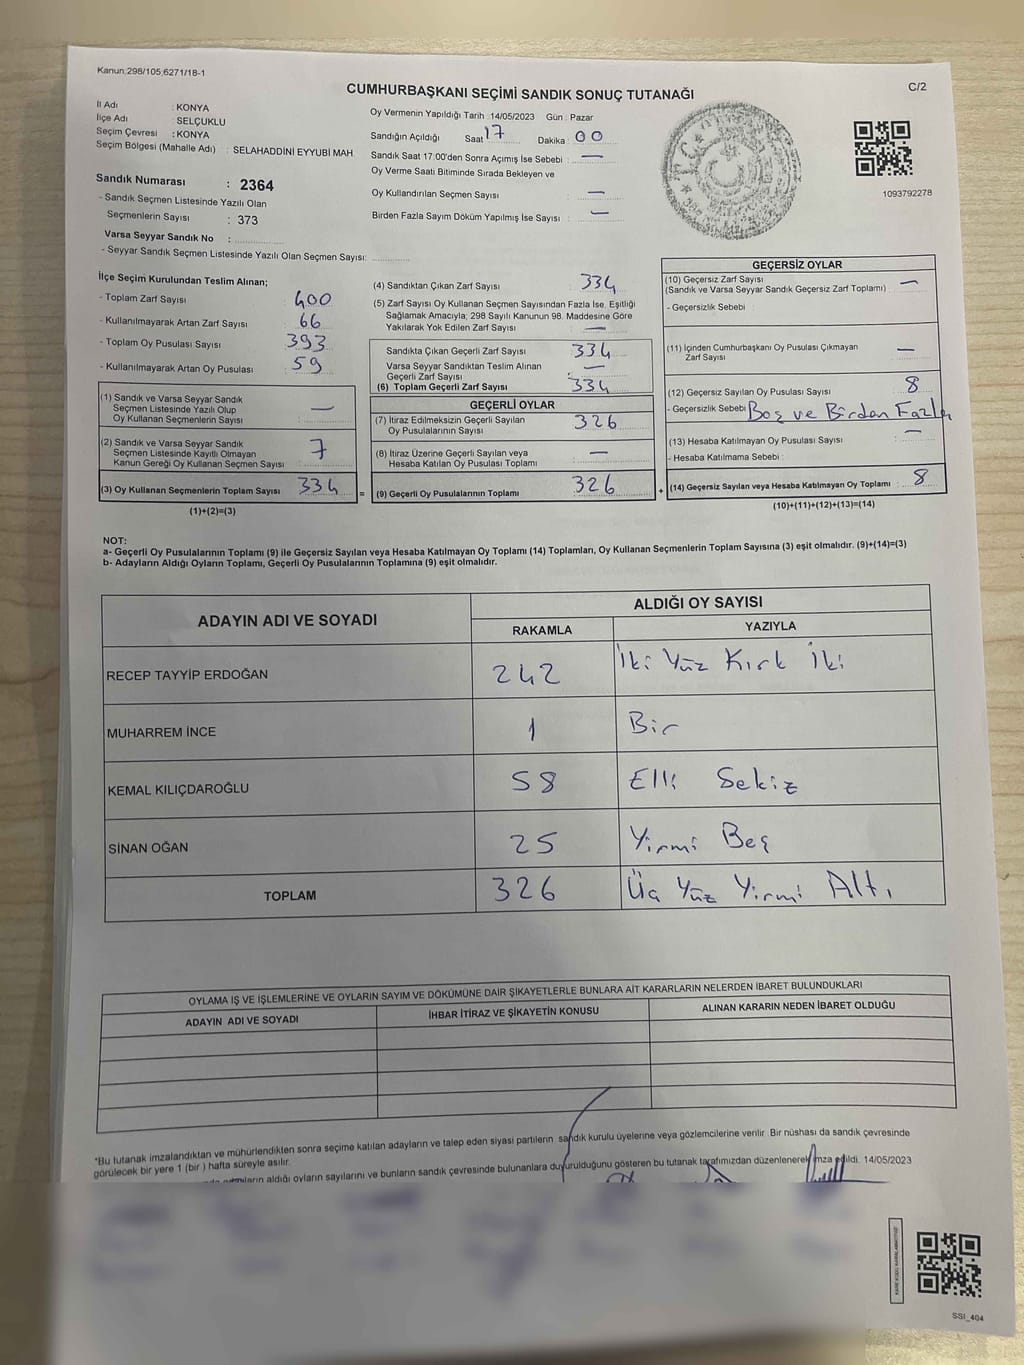 Kanun;298/105,6271/18-1
CUMHURBAŞKANI SEÇİMİ SANDIK SONUÇ TUTANAĞI
C/2
İl Adı : KONYA
İlçe Adı : SELÇUKLU
Seçim Çevresi : KONYA
Seçim Bölgesi (Mahalle Adı) : SELAHADDİNİ EYYUBİ MAH.
Sandık Numarası : 2364
- Sandık Seçmen Listesinde Yazılı Olan
Seçmenlerin Sayısı : 373
Varsa Seyyar Sandık No :
- Seyyar Sandık Seçmen Listesinde Yazılı Olan Seçmen Sayısı:
Oy Vermenin Yapıldığı Tarih : 14/05/2023 Gün : Pazar
Sandığın Açıldığı Saat 17 Dakika : 00
Sandık Saat 17:00'den Sonra Açımış İse Sebebi : —
Oy Verme Saati Bitiminde Sırada Bekleyen ve
Oy Kullandırılan Seçmen Sayısı : —
Birden Fazla Sayım Döküm Yapılmış İse Sayısı : —
1093792278
İlçe Seçim Kurulundan Teslim Alınan;
- Toplam Zarf Sayısı : 400
- Kullanılmayarak Artan Zarf Sayısı : 66
- Toplam Oy Pusulası Sayısı : 393
- Kullanılmayarak Artan Oy Pusulası : 59
(1) Sandık ve Varsa Seyyar Sandık
Seçmen Listesinde Yazılı Olup
Oy Kullanan Seçmenlerin Sayısı : —
(2) Sandık ve Varsa Seyyar Sandık
Seçmen Listesinde Kayıtlı Olmayan
Kanun Gereği Oy Kullanan Seçmen Sayısı : 7
(3) Oy Kullanan Seçmenlerin Toplam Sayısı : 334
(1)+(2)=(3)
(4) Sandıktan Çıkan Zarf Sayısı : 334
(5) Zarf Sayısı Oy Kullanan Seçmen Sayısından Fazla İse, Eşitliği
Sağlamak Amacıyla; 298 Sayılı Kanunun 98. Maddesine Göre
Yakılarak Yok Edilen Zarf Sayısı : —
Sandıkta Çıkan Geçerli Zarf Sayısı : 334
Varsa Seyyar Sandıktan Teslim Alınan
Geçerli Zarf Sayısı : —
(6) Toplam Geçerli Zarf Sayısı : 334
GEÇERLİ OYLAR
(7) İtiraz Edilmeksizin Geçerli Sayılan
Oy Pusulalarının Sayısı : 326
(8) İtiraz Üzerine Geçerli Sayılan veya
Hesaba Katılan Oy Pusulası Toplamı : —
= (9) Geçerli Oy Pusulalarının Toplamı : 326
GEÇERSİZ OYLAR
(10) Geçersiz Zarf Sayısı
(Sandık ve Varsa Seyyar Sandık Geçersiz Zarf Toplamı) : —
- Geçersizlik Sebebi :
(11) İçinden Cumhurbaşkanı Oy Pusulası Çıkmayan
Zarf Sayısı : —
(12) Geçersiz Sayılan Oy Pusulası Sayısı : 8
- Geçersizlik Sebebi : Boş ve Birden Fazla
(13) Hesaba Katılmayan Oy Pusulası Sayısı : —
- Hesaba Katılmama Sebebi :
+ (14) Geçersiz Sayılan veya Hesaba Katılmayan Oy Toplamı : 8
(10)+(11)+(12)+(13)=(14)
NOT:
a- Geçerli Oy Pusulalarının Toplamı (9) ile Geçersiz Sayılan veya Hesaba Katılmayan Oy Toplamı (14) Toplamları, Oy Kullanan Seçmenlerin Toplam Sayısına (3) eşit olmalıdır. (9)+(14)=(3)
b- Adayların Aldığı Oyların Toplamı, Geçerli Oy Pusulalarının Toplamına (9) eşit olmalıdır.
ADAYIN ADI VE SOYADI
ALDIĞI OY SAYISI
RAKAMLA YAZIYLA
RECEP TAYYİP ERDOĞAN 242 İki Yüz Kırk İki
MUHARREM İNCE 1 Bir
KEMAL KILIÇDAROĞLU 58 Elli Sekiz
SİNAN OĞAN 25 Yirmi Beş
TOPLAM 326 Üç Yüz Yirmi Altı
OYLAMA İŞ VE İŞLEMLERİNE VE OYLARIN SAYIM VE DÖKÜMÜNE DAİR ŞİKAYETLERLE BUNLARA AİT KARARLARIN NELERDEN İBARET BULUNDUKLARI
ADAYIN ADI VE SOYADI İHBAR İTİRAZ VE ŞİKAYETİN KONUSU ALINAN KARARIN NEDEN İBARET OLDUĞU
*Bu tutanak imzalandıktan ve mühürlendikten sonra seçime katılan adayların ve talep eden siyasi partilerin sandık kurulu üyelerine veya gözlemcilerine verilir. Bir nüshası da sandık çevresinde
görülecek bir yere 1 (bir ) hafta süreyle asılır.
aldığı oyların sayılarını ve bunların sandık çevresinde bulunanlara duyurulduğunu gösteren bu tutanak tarafımızdan düzenlenerek imza edildi. 14/05/2023
SSI_404